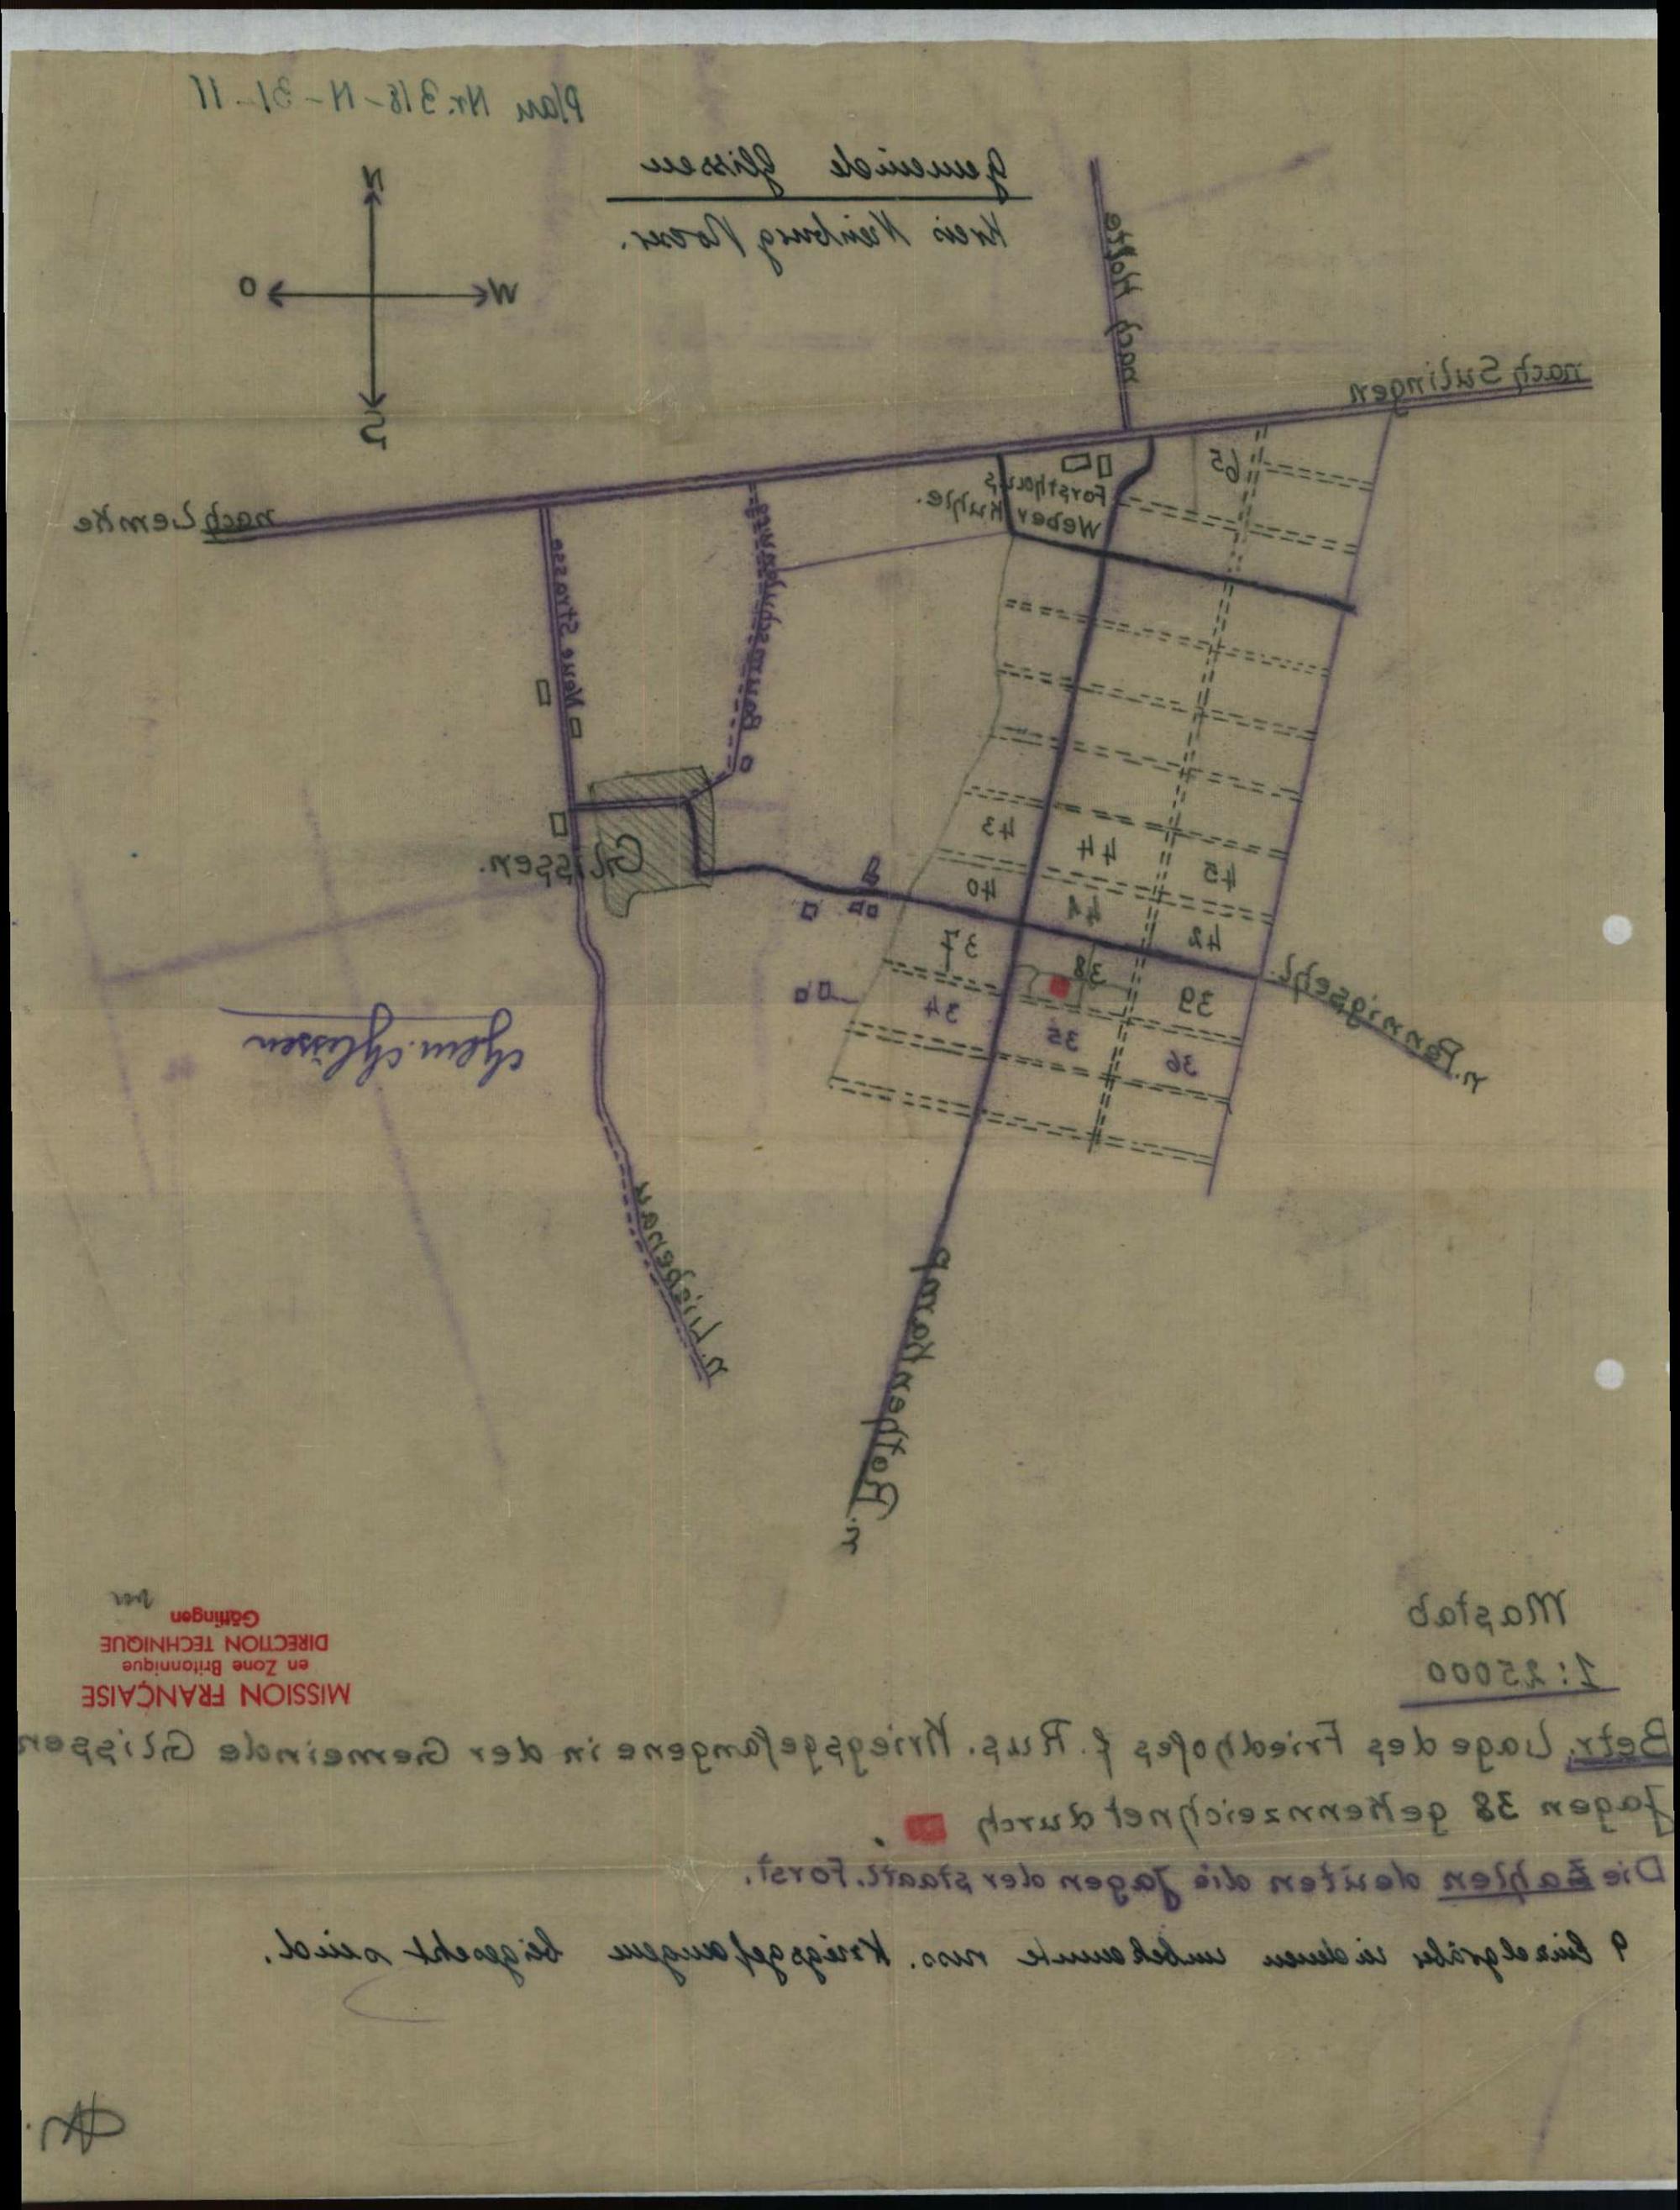 Plan Nr. 318-N-31-11
Gemeinde Glissen
Kreis Nienburg Weser.
N
W
O
S
nach Holte
nach Sulingen
nach Lemke
Forsthaus
Weber Kuhle.
65
Neue Strasse
43
44
45
40
41
42
37
38
39
34
35
36
Glissen.
n. Pennigsehl.
Gem. Glissen
n. Liebenau
n. Rothenkamp
Mastab
1:25000
MISSION FRANÇAISE
en Zone Britannique
DIRECTION TECHNIQUE
Göttingen
Betr. Lage des Friedhofes f. Rus. Kriegsgefangene in der Gemeinde Glissen
Jagen 38 gekennzeichnet durch .
Die Zahlen deuten die Jagen der staatl. Forst.
9 Einzelgräber in denen unbekannte russ. Kriegsgefangene beigesetzt sind.